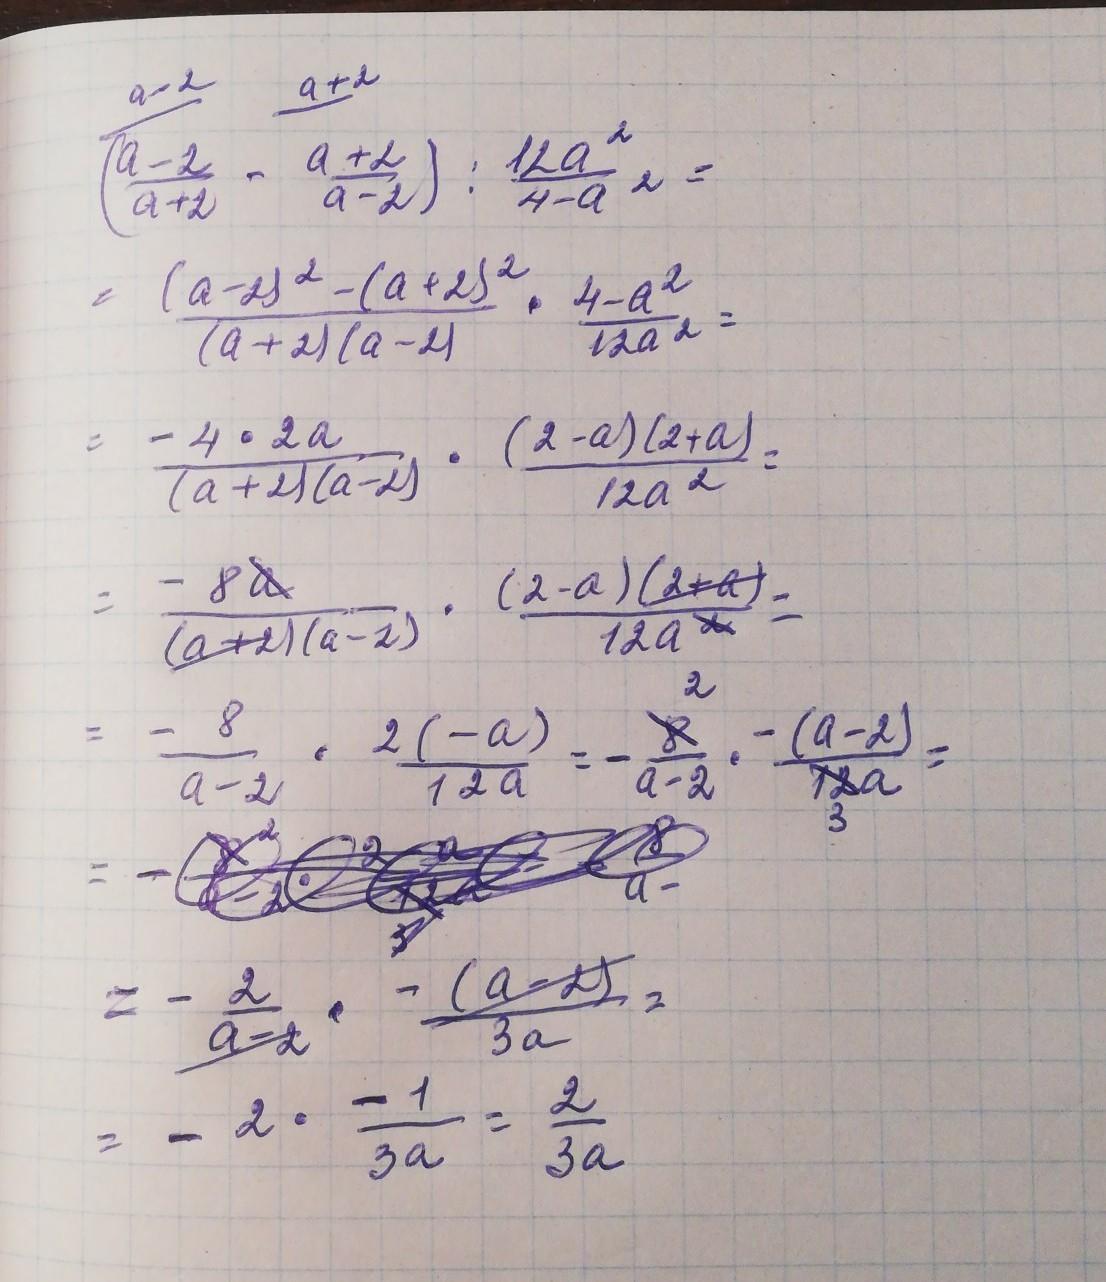 a-2 a+2
(a-2/a+2 - a+2/a-2) : 12a²/4-a² =
= (a-2)² -(a+2)²/(a+2)(a-2) · 4-a²/12a² =
= -4·2a/(a+2)(a-2) · (2-a)(2+a)/12a² =
= -8a/(a+2)(a-2) · (2-a)(2+a)/12a² =
= -8/a-2 · 2(-a)/12a = - 8/a-2 · -(a-2)/12a =
2 3
= - 8 a-
= - 2/a-2 · -(a-2)/3a =
= - 2 · -1/3a = 2/3a